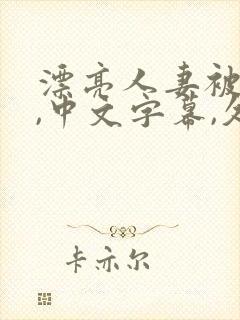 漂亮人妻被
,中文字幕,久
卡亦尔